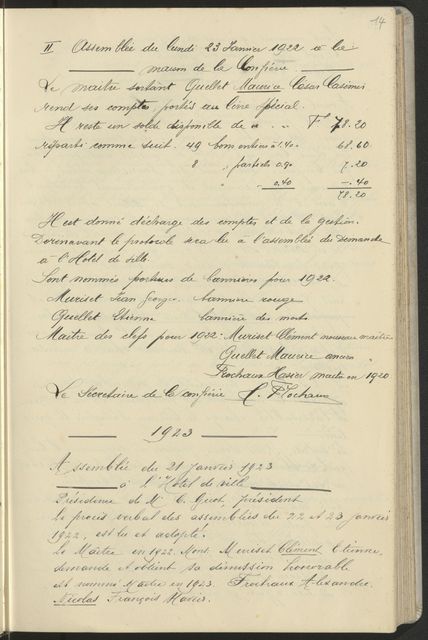 14
II. Assemblée du lundi 23 Janvier 1922 à la
maison de la Confrérie
Le maître sortant Quellet Maurice César Casimir
rend ses comptes portés au livre spécial.
Il reste un solde disponible de F 78.20
réparti comme suit. 49 bons entiers à 1.40. 68.60
8 " partiels 0.90 7.20
" 0.40 -.40
78.20
Il est donné décharge des comptes et de la gestion.
Dorenavant le protocole sera lu à l'assemblée du Dimanche
à l'Hotel de ville.
Sont nommés porteurs de bannières pour 1922.
Muriset Jean Georges. bannière rouge
Quellet Etienne bannière des morts.
Maître des clefs pour 1922: Muriset Clément nouveau maître
Quellet Maurice ancien "
Frochaux Xavier maître en 1920
Le Secrétaire de la confrérie C. Frochaux
1923
Assemblée du 21 janvier 1923
à l'Hotel de ville
Présidence de Mr C. Gicot, président
Le procès verbal des assemblées du 22 et 23 janvier
1922, est lu et adopté.
Le Maître en 1922. Mons. Muriset Clément Etienne,
demande et obtient sa démission honorable
est nommé Maître en 1923. Frochaux Alexandre
Nicolas François Xavier.